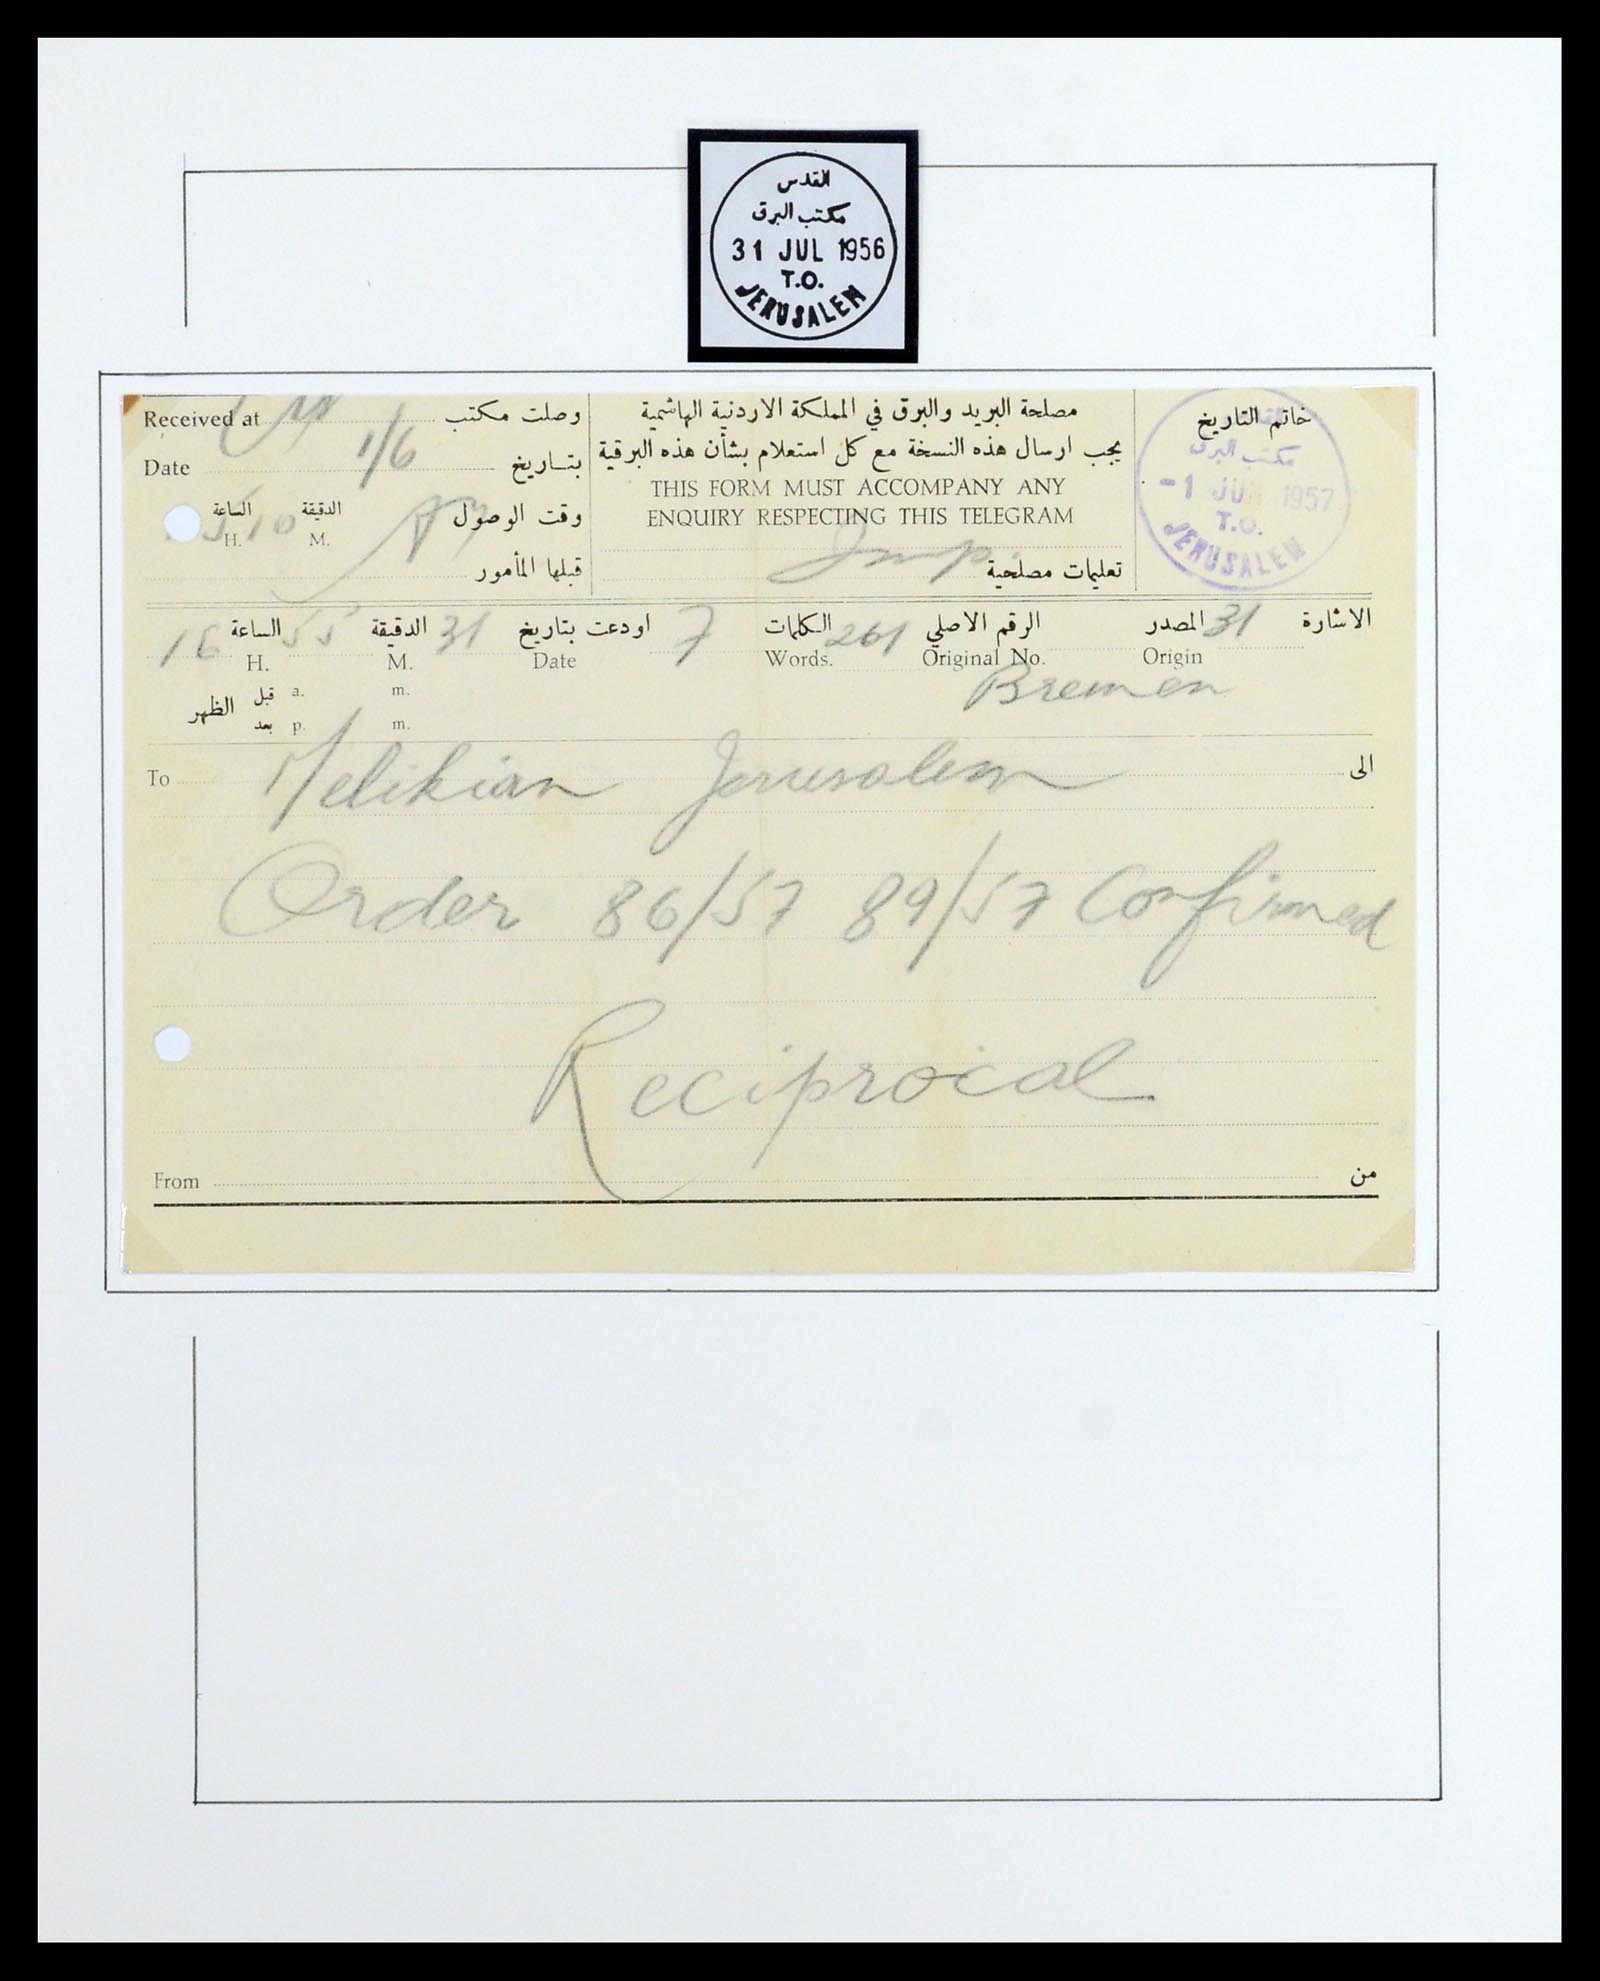 القدس
مكتب البرق
31 JUL 1956
T.O.
JERUSALEM
Received at وصلت مكتب
Date 1/6 بتاريخ
الساعة الدقيقة وقت الوصول
H. 10 M.
قبلها المأمور
مصلحة البريد والبرق في المملكة الاردنية الهاشمية
يجب ارسال هذه النسخة مع كل استعلام بشأن هذه البرقية
THIS FORM MUST ACCOMPANY ANY
ENQUIRY RESPECTING THIS TELEGRAM
تعليمات مصلحية
خاتم التاريخ
مكتب البرق
-1 JUN 1957
T.O.
JERUSALEM
16 الساعة 55 الدقيقة 31 اودعت بتاريخ 7 الكلمات 261 الرقم الاصلي المصدر 31 الاشارة
H. M. Date Words. Original No. Origin
Bremen
قبل a. m.
الظهر
بعد p. m.
To Melikian Jerusalem الى
Order 86/57 89/57 Confirmed
Reciprocal
From من